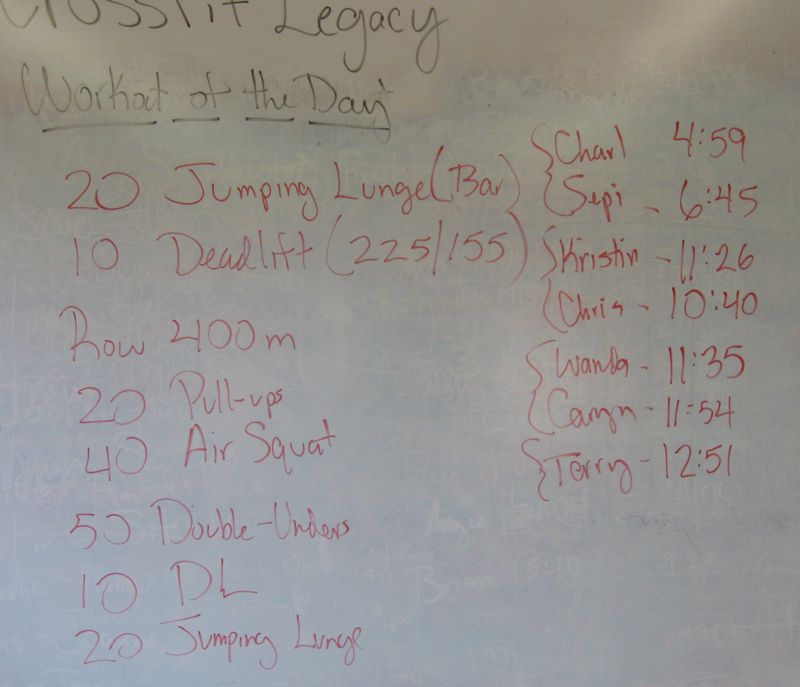 Crossfit Legacy
Workout of the Day
20 Jumping Lunge (Bar)
10 Deadlift (225/155)
Row 400m
20 Pull-ups
40 Air Squat
50 Double-Unders
10 DL
20 Jumping Lunge
{Charl 4:59
{Sepi - 6:45
{Kristin - 11:26
{Chris - 10:40
{Wanda - 11:35
{Camyn - 11:54
{Terry - 12:51